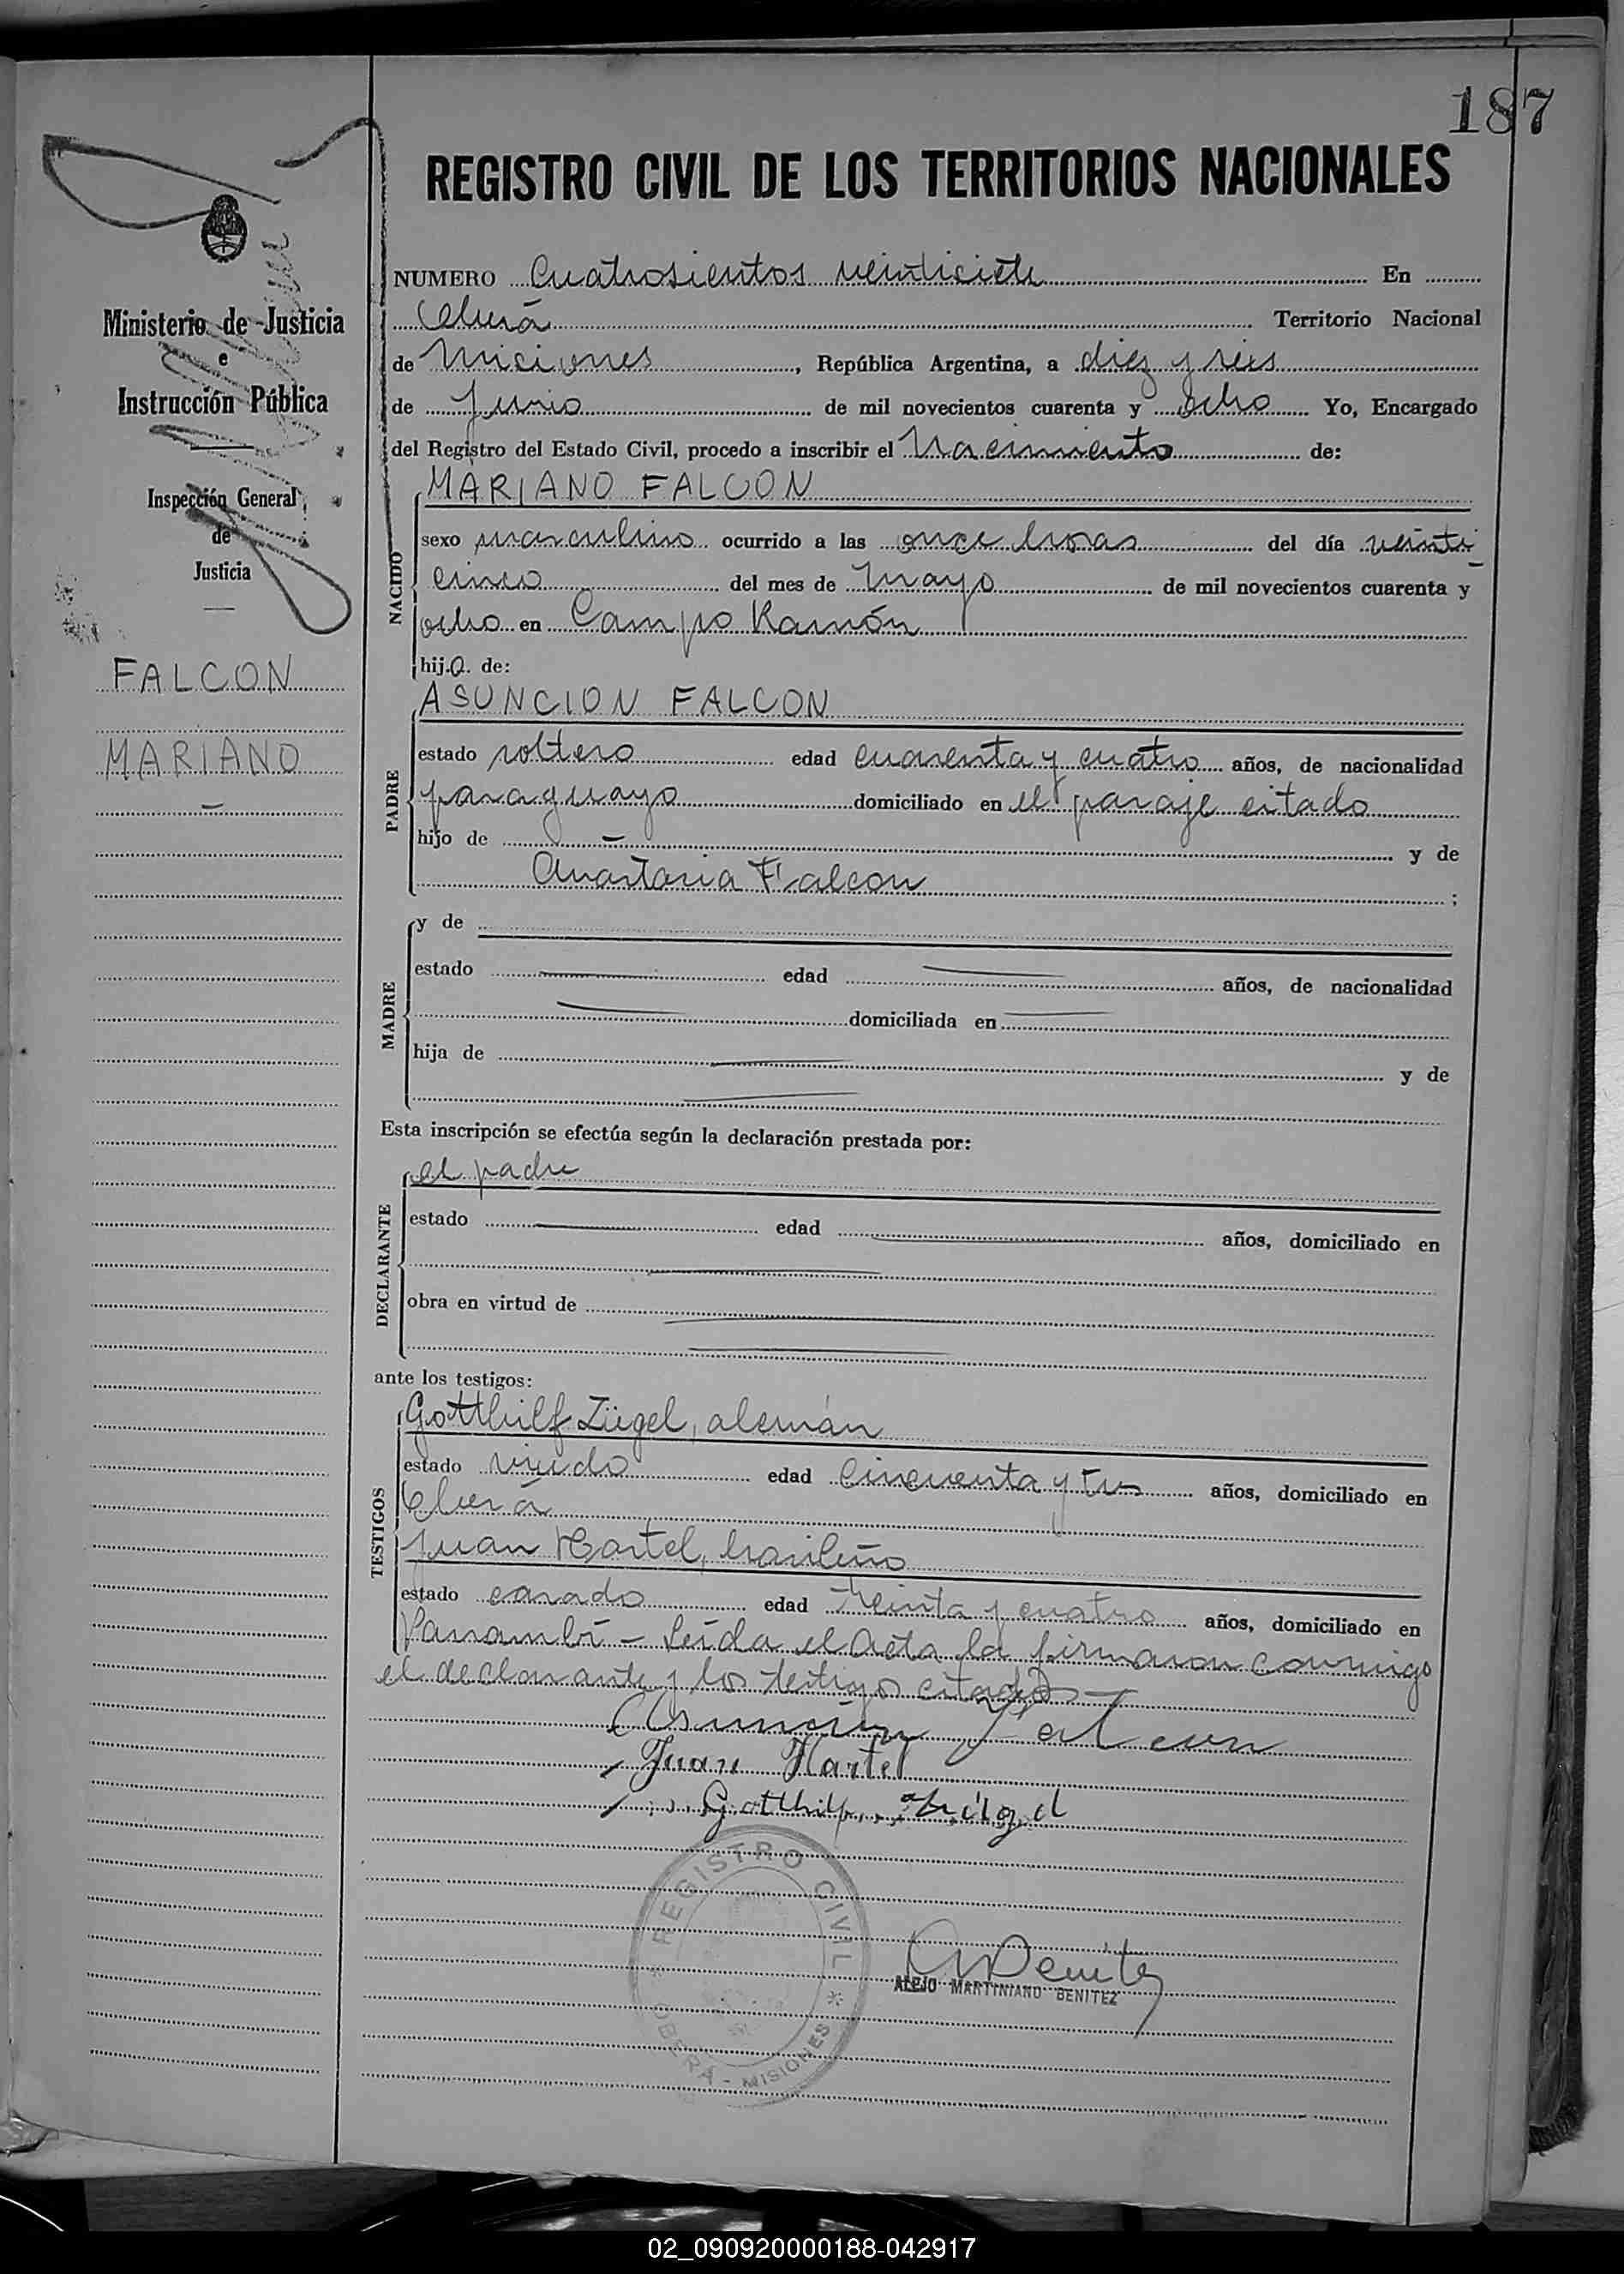 187
REGISTRO CIVIL DE LOS TERRITORIOS NACIONALES
Ministerio de Justicia
e
Instrucción Pública
Inspección General
de
Justicia
FALCON
MARIANO
NUMERO Cuatrosientos veinticiete En
Oberá Territorio Nacional
de Miciones, República Argentina, a diez y seis
de Junio de mil novecientos cuarenta y ocho Yo, Encargado
del Registro del Estado Civil, procedo a inscribir el Nacimiento de:
NACIDO
MARIANO FALCON
sexo masculino ocurrido a las once horas del día veinti
cinco del mes de Mayo de mil novecientos cuarenta y
ocho en Campo Ramón
hij.o. de:
PADRE
ASUNCION FALCON
estado soltero edad cuarenta y cuatro años, de nacionalidad
paraguayo domiciliado en el paraje citado
hijo de — y de
Anastasia Falcon ;
MADRE
y de
estado edad años, de nacionalidad
domiciliada en
hija de y de
Esta inscripción se efectúa según la declaración prestada por:
DECLARANTE
el padre
estado edad años, domiciliado en
obra en virtud de
ante los testigos:
TESTIGOS
Gotthilf Zügel, alemán
estado viudo edad cincuenta y tres años, domiciliado en
Oberá
Juan Hartel, brasileño
estado casado edad treinta y cuatro años, domiciliado en
Panambí - Leída el Acta la firmaron conmigo
el declarante y los testigos citados —
Asunción Falcon
Juan Hartel
Gotthilf
REGISTRO CIVIL
OBERÁ - MISIONES
Benitez
ALEJO MARTINIANO BENITEZ
02_090920000188-042917